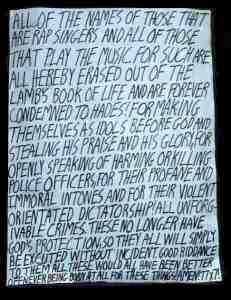 ALL OF THE NAMES OF THOSE THAT
ARE RAP SINGERS AND ALL OF THOSE
THAT PLAY THE MUSIC FOR SUCH ARE
ALL HEREBY ERASED OUT OF THE
LAMB'S BOOK OF LIFE AND ARE FOREVER
CONDEMNED TO HADES! FOR MAKING
THEMSELVES AS IDOLS BEFORE GOD AND
STEALING HIS PRAISE AND HIS GLORY, FOR
OPENLY SPEAKING OF HARMING OR KILLING
POLICE OFFICERS, FOR THEIR PROFANE AND
IMMORAL INTONES AND FOR THEIR VIOLENT
ORIENTATED DICTATORSHIP! ALL UNFORG-
IVABLE CRIMES. THESE NO LONGER HAVE
GOD'S PROTECTION, SO THEY ALL WILL SIMPLY
BE EXCUTED WITHOUT INCIDENT. GOOD RIDDANCE
TO THEM ALL. THESE WOULD ALL HAVE BEEN BETTER
OFF NEVER BEING BORN AT ALL FOR THESE THINGS! AMEN.